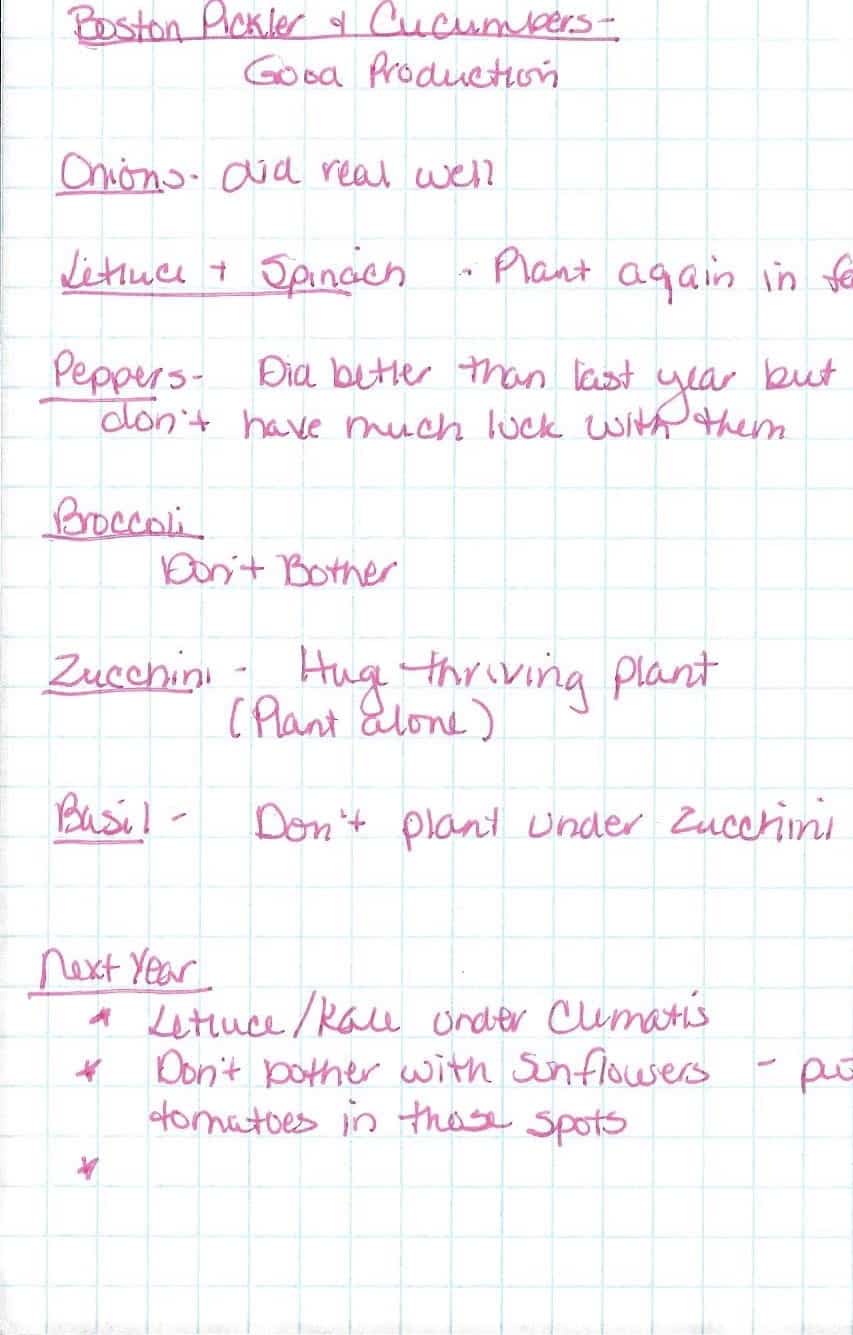 Boston Pickler & Cucumbers-
Good Production
Onions- did real well
Lettuce + Spinach - Plant again in
Peppers- Did better than last year but
don't have much luck with them
Broccoli
Don't Bother
Zucchini - Hug thriving plant
(Plant alone)
Basil - Don't plant under zucchini
Next Year
* Lettuce/Kale under Clematis
* Don't bother with Sunflowers -
tomatoes in those spots
*